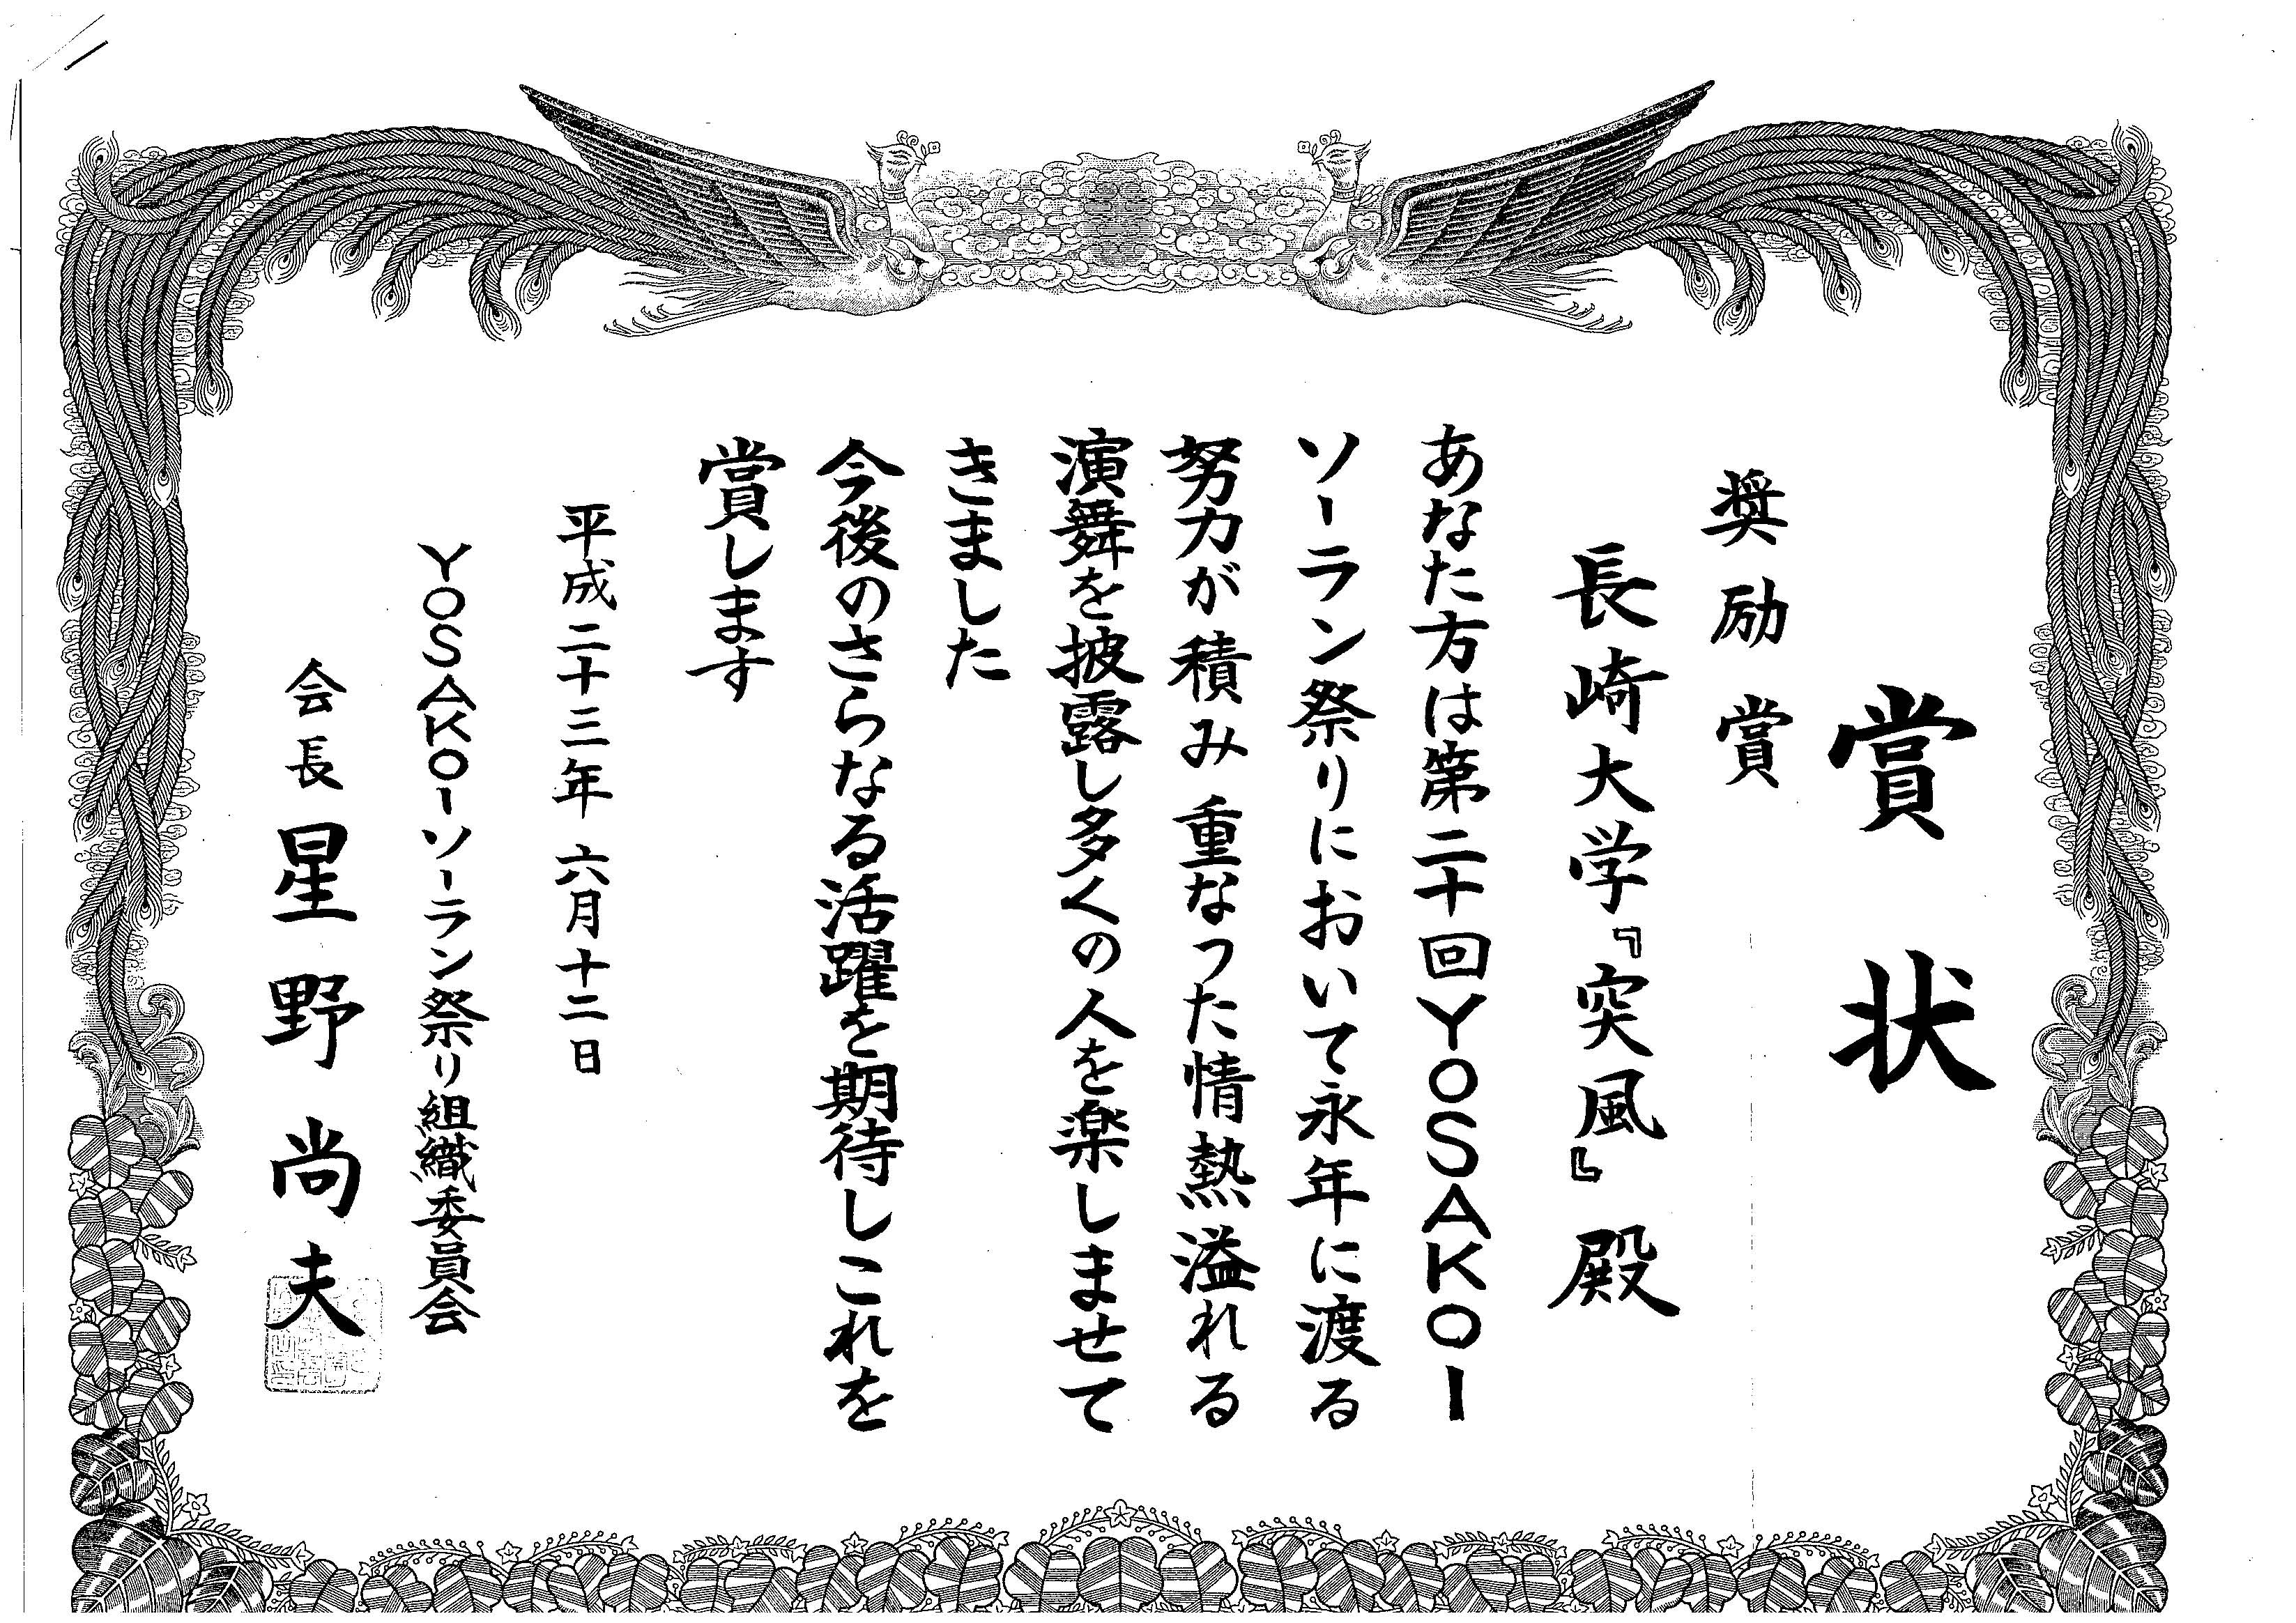 賞状
奨励賞
長崎大学『突風』殿
あなた方は第二十回YOSAKOI
ソーラン祭りにおいて永年に渡る
努力が積み重なった情熱溢れる
演舞を披露し多くの人を楽しませて
きました
今後のさらなる活躍を期待しこれを
賞します
平成二十三年六月十二日
YOSAKOIソーラン祭り組織委員会
会長 星野尚夫